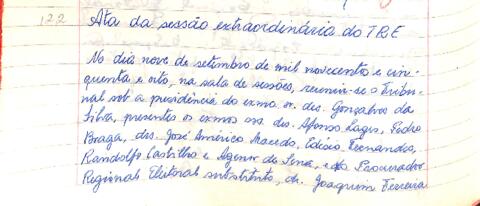 122
Ata da sessão extraordinária do TRE
No dia nove de setembro de mil novecento e cin-
quenta e oito, na sala de sessões, reuniu-se o Tribu-
nal sob a presidência do exmo sr. des. Gonçalves da
Silva, presentes os exmos srs. des. Afonso Lages, Pedro
Braga, des. José Américo Macedo, Edésio Fernandes,
Randolfo Castilho e Agenor de Sena, e o Procurador
Regional Eleitoral substituto, dr. Joaquim Ferreira